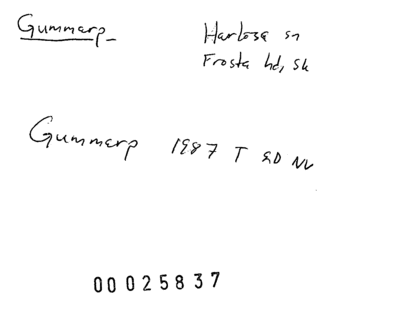 Gummarp
Harlösa sn
Frosta hd, Sk
Gummarp 1987 T SD NV
00025837